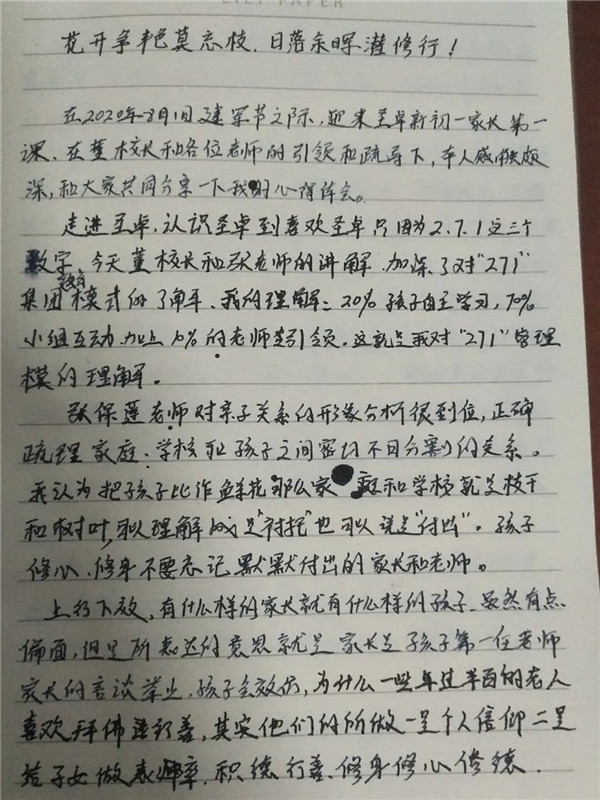 LILI PAPER
花开争艳莫忘枝,日落余晖灌修行!
在2020年8月1日建军节之际,迎来至卓新初一家长第一
课,在董校长和各位老师的引领和疏导下,本人感触颇
深,和大家共同分享一下我的心得体会。
走进至卓,认识至卓到喜欢至卓只因为2.7.1这三个
数字,今天董校长和张老师的讲解,加深了对"271"
教育
集团模式的了解,我的理解:20%孩子自主学习,70%
小组互动,加上10%的老师引领。这就是我对"271"管理
模的理解。
张保莲老师对亲子关系的形象分析很到位,正确
疏理家庭、学校和孩子之间密切不可分割的关系。
我认为把孩子比作鲜花,那么家庭和学校就是枝干
和树叶,可以理解成是"衬托"也可以说是"付出"。孩子
修心、修身不要忘记默默付出的家长和老师。
上行下效,有什么样的家长就有什么样的孩子,虽然有点
偏面,但是所表达的意思就是家长是孩子第一任老师
家长的言谈举止,孩子会效仿,为什么一些年过半百的老人
喜欢拜佛语行善,其实他们的所做一是个人信仰二是
给子女做表率,积德行善、修身修心修德.